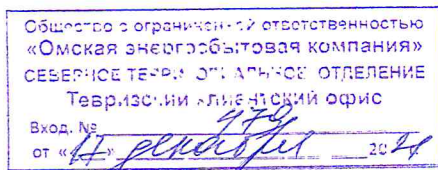 Общество с ограниченной ответственностью
«Омская энергосбытовая компания»
СЕВЕРНОЕ ТЕРРИТОРИАЛЬНОЕ ОТДЕЛЕНИЕ
Тевризский клиентский офис
Вход. №
от «17» декабря 2021